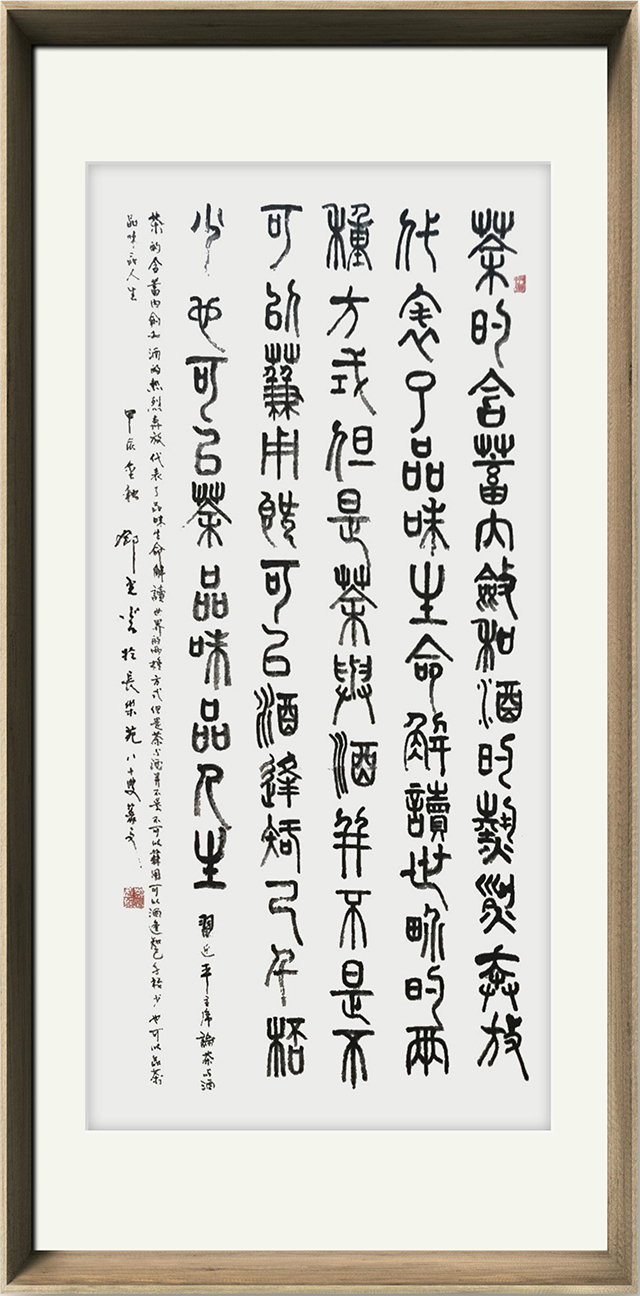 茶的含蓄內斂和酒的熱烈奔放
代表了品味生命解讀世界的兩
種方式但是茶與酒並不是不
可以蒹用既可以酒逢知己千桮
少也可以茶品味品人生 習近平主席論茶与酒
茶的含蓄内斂和酒的熱烈奔放代表了品味生命解讀世界的兩種方式但是茶与酒并不是不可以蒹用可以酒逢知己千桮少也可以品茶
品味品人生 甲辰金秋 鄧於長樂苑八十雙